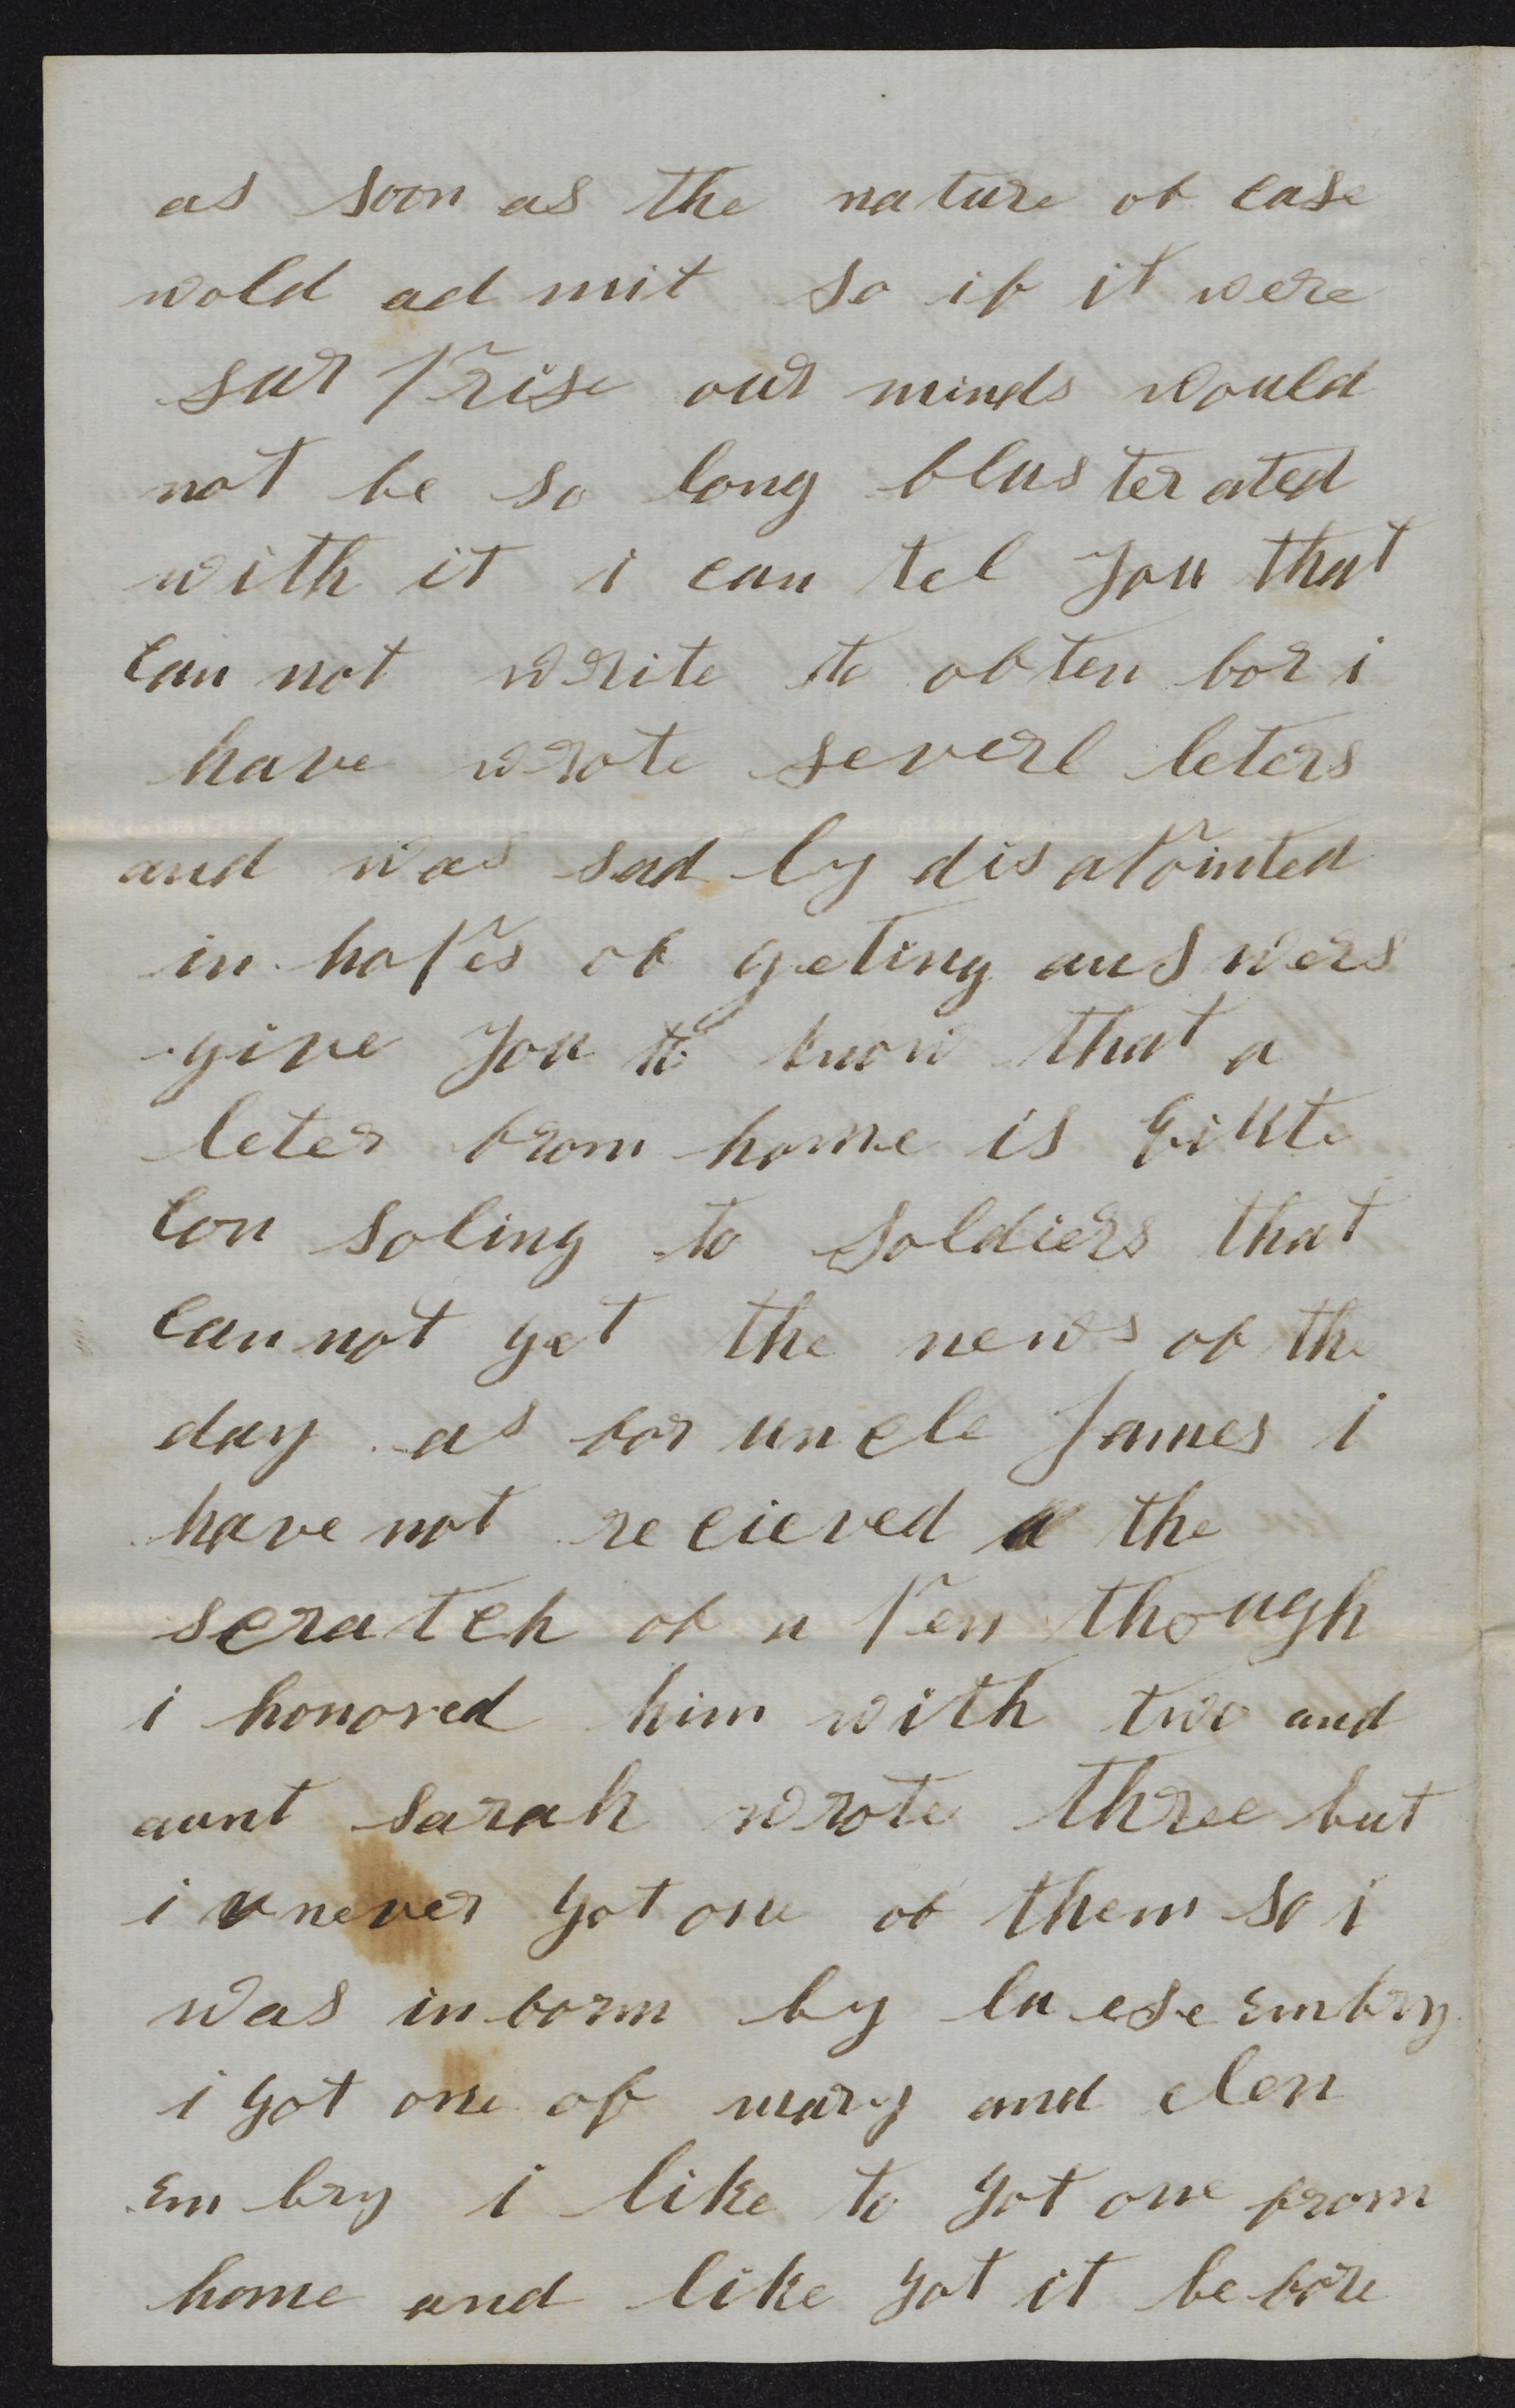 as soon as the nature of case
wold ad mit so if it were
sur prise our minds would
not be so long flusterated
with it i can tel you that
can not write to often for i
have wrote severl leters
and was sad ly dis apointed
in hopes of geting answers
give you to know that a
leter from home is quite
con soling to soldiers that
can not get the news of the
day as for uncle James i
have not recieved the
scratch of a pen though
i honored him with two and
aunt sarah wrote three but
i never got one of them so i
was in form by embry
i got one of mary and elen
em bry i like to got one from
home and like got it be fore